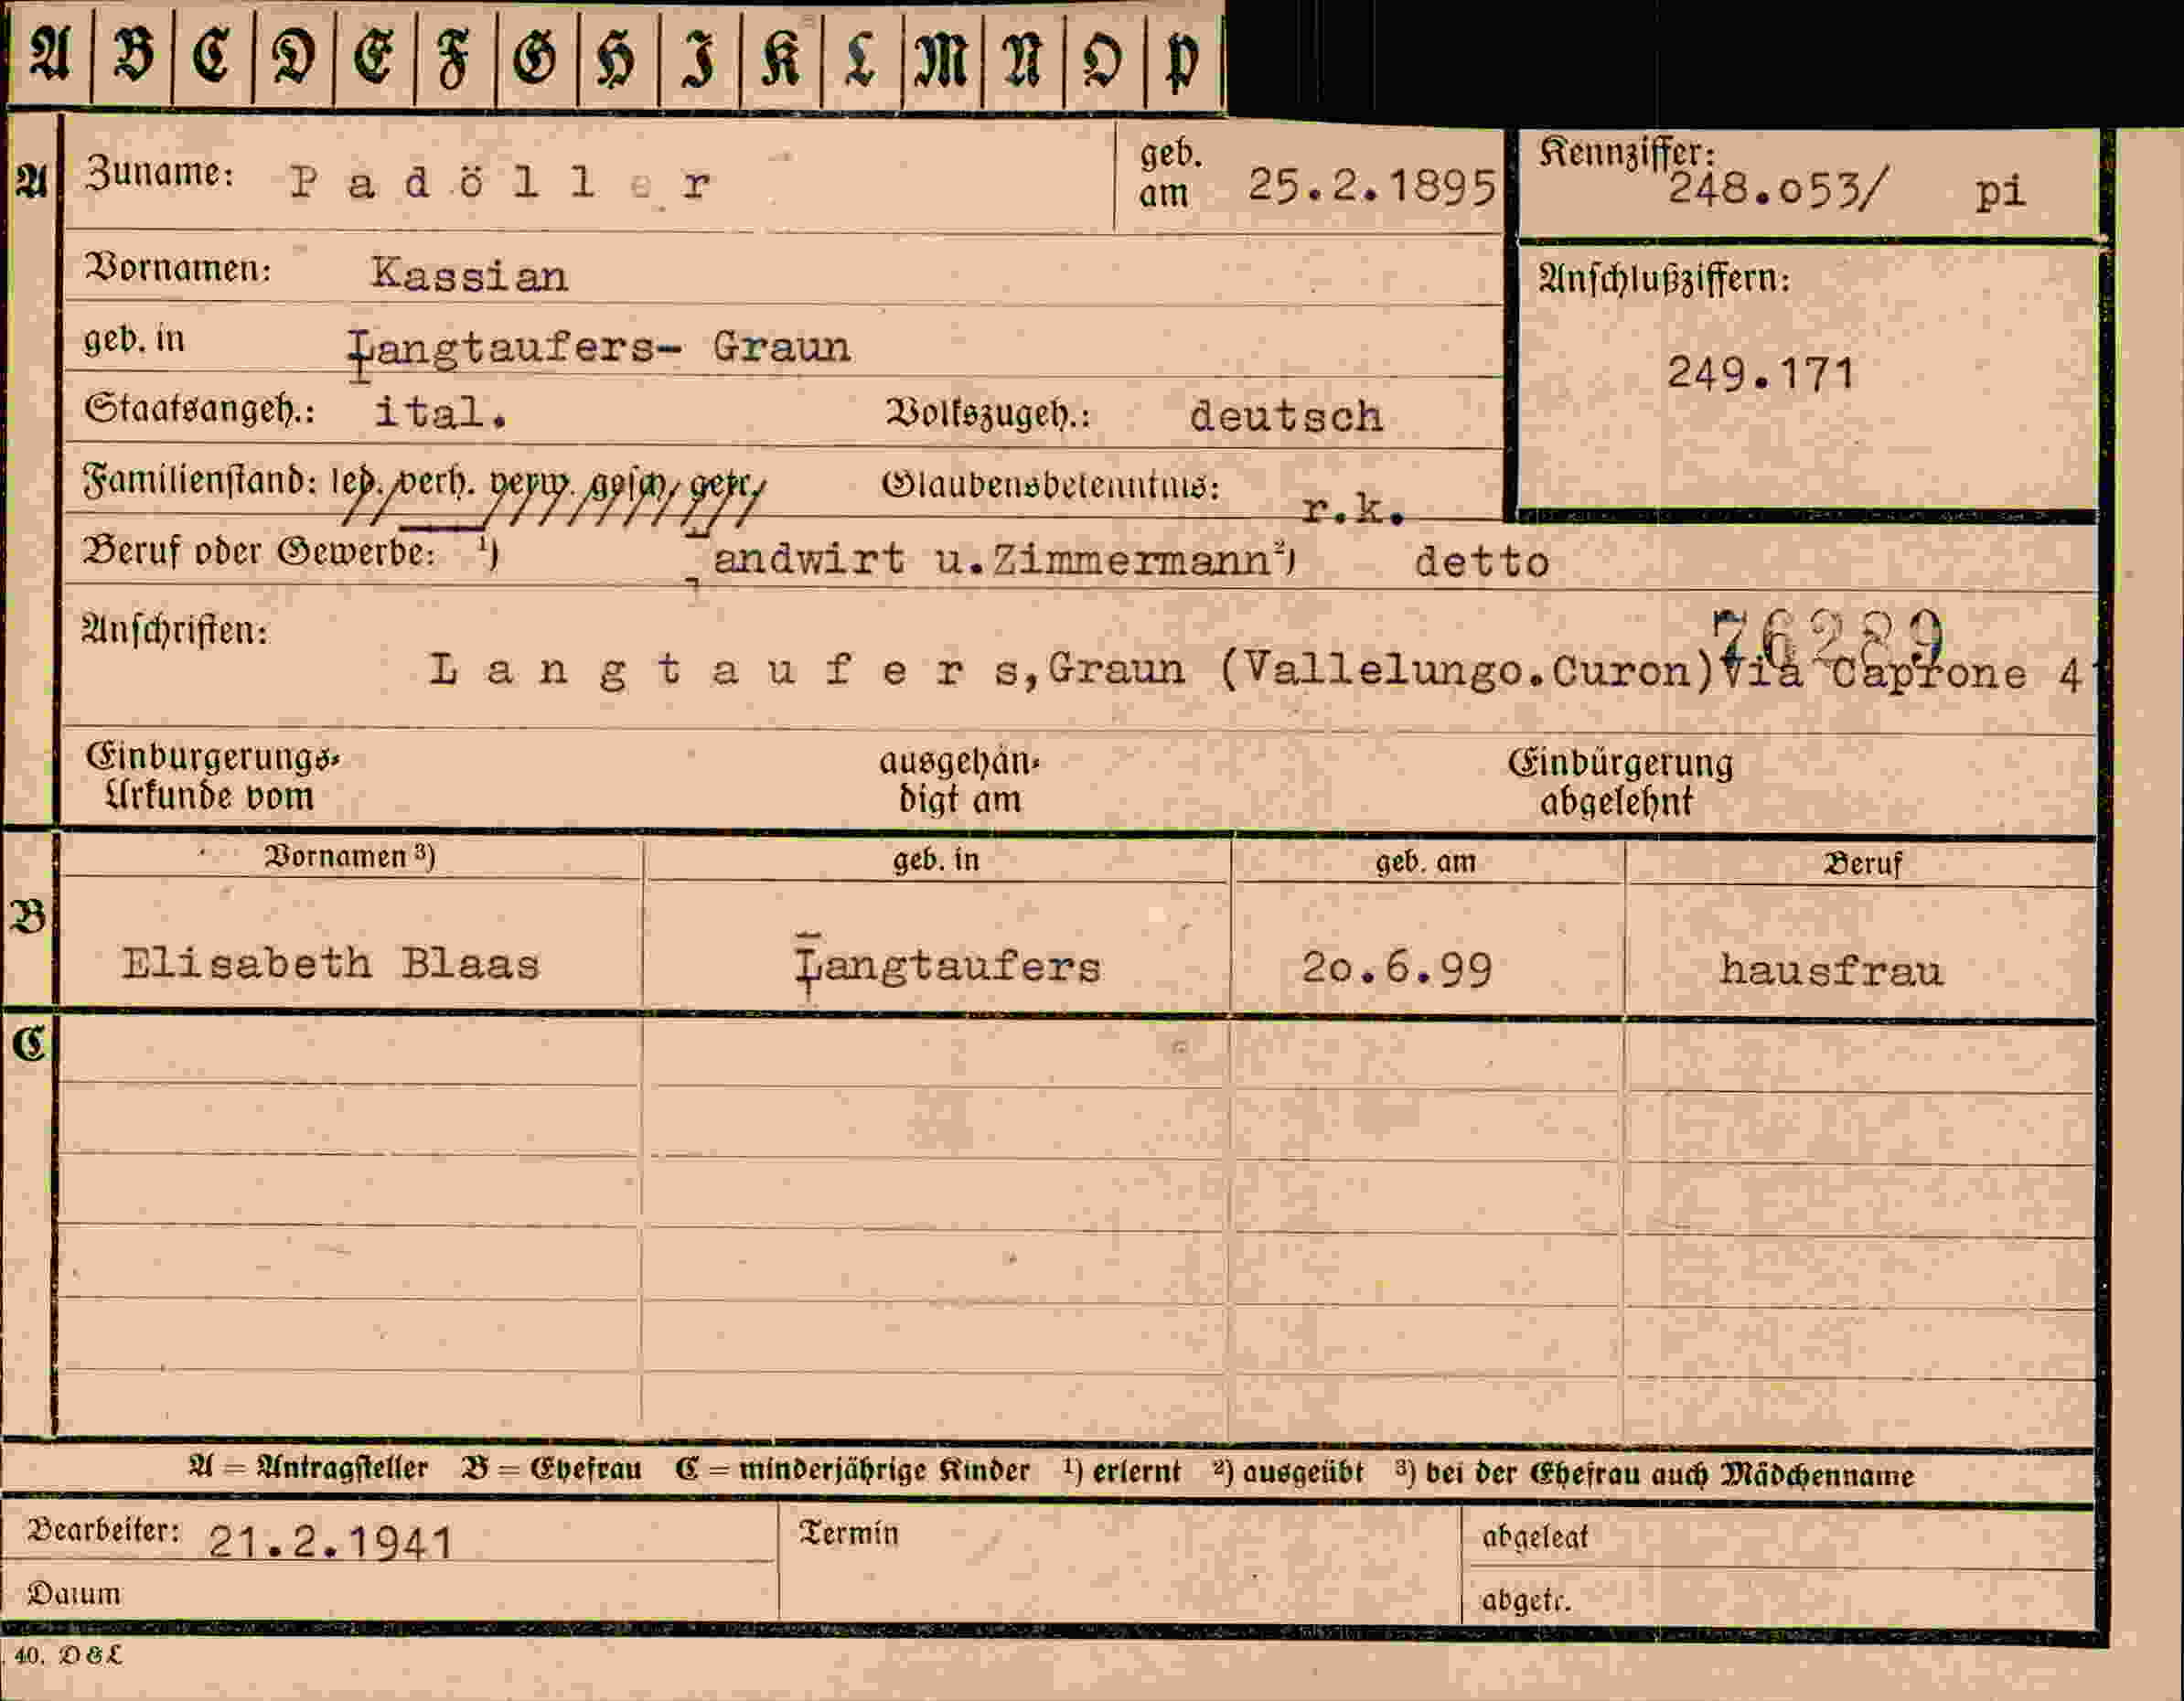 A B C D E F G H I K L M N O P
A Zuname: Padöller geb. am 25.2.1895 Kennziffer: 248.o53/ pi
Vornamen: Kassian Anschlußziffern:
geb. in Langtaufers- Graun 249.171
Staatsangeh.: ital. Volkszugeh.: deutsch
Familienstand: led. verh. verw. gesch. getr. Glaubensbekenntnis: r.k.
Beruf oder Gewerbe: ¹) Landwirt u.Zimmermann ²) detto
76289
Anschriften: Langtaufers,Graun (Vallelungo.Curon)Via Caprone 4
Einbürgerungs- ausgehän- Einbürgerung
Urkunde vom digt am abgelehnt
Vornamen ³) geb. in geb. am Beruf
B Elisabeth Blaas Langtaufers 2o.6.99 hausfrau
C
A = Antragsteller B = Ehefrau C = minderjährige Kinder ¹) erlernt ²) ausgeübt ³) bei der Ehefrau auch Mädchenname
Bearbeiter: 21.2.1941 Termin abgelegt
Datum abgetr.
40. D & L